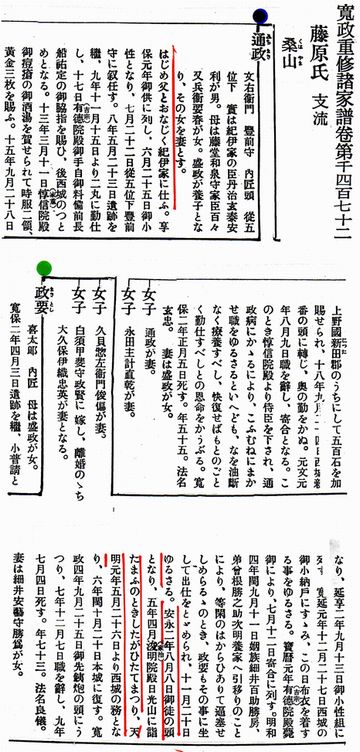 寛政重修諸家譜卷第千四百七十二
藤原氏 支流
桑山
くは やま
通政
みち まさ
文右衛門 豊前守 内匠頭 從五
位下 實は紀伊家の臣丹治玄泰安
利が男。母は藤堂和泉守家臣百々
又兵衛要春が女。盛政が養子とな
り、その女を妻とす。
はじめ父とおなじく紀伊家に仕ふ。享
保元年御供に列し、六月二十五日御小
性となり、七月二十二日從五位下豊前
守に叙任す。八年五月二十三日遺跡を
繼、九年十一月十五日より二丸に勤仕
し、十七日有徳院殿御手自御料備前長
船祐定の御脇指を賜ひ、後西城のつと
めとなる。十三年三月十一日惇信院殿
御疱瘡の御酒湯を賀せられて時服二領、
黄金三枚を賜ふ。十五年九月二十八日
上野國新田郡のうちにして五百石を加
賜せられ、十八年九月
番の頭に轉じ、奥の勤をかぬ。元文元
年八月九日職を辭し、寄合となる。こ
のとき惇信院殿より侍臣を下され、通
政病にかゝるにより、こふむねにまか
せ職をゆるさるといへども、なを油斷
なく療養すべし、快復せばもとのごと
く勤仕すべしとの恩命をかうぶる。寛
保二年正月五日死す。年五十五。法名
玄忠。 妻は盛政が女。
女子
通政が妻。
女子
永田主計直乾が妻。
女子
久貝惣左衛門俊偏が妻。
女子
白須甲斐守政賢に嫁し、離婚のゝち
大久保伊織忠英が妻となる。
政要
喜太郎 内匠 母は盛政が女。
寛保二年四月三日遺跡を繼、小普請と
なり、延享二年九月十三日御小性組に
列す 寛延元年十二月二十七日西城の
御小納戸にすゝみ、この日布衣を着す
る事をゆるさる。寶暦元年有徳院殿薨
御により、七月十二日寄合に列す。明和
四年閏九月十一日姻族細井百助勝房、
弟曾根勝之助次明養家へ引移りのこと
により、等閑のはからひありて逼塞せ
しめらるゝのとき、政要もその事に坐
して出仕をとゞめられ、十一月二十日
ゆるさる。安永二年八月八日御徒の頭
となり、五年四月浚明院殿日光山に詣
たまふのときしたがひたてまつり、天
明元年五月二十六日より西城の務とな
り、六年閏十月二十日本城に復す。寛
政四年九月二十日御先鉄炮の頭にう
つり、七年十二月七日職を辭し、九年
七月四日死す。年七十三。法名良儀。
妻は細井安藝守勝爲が女。